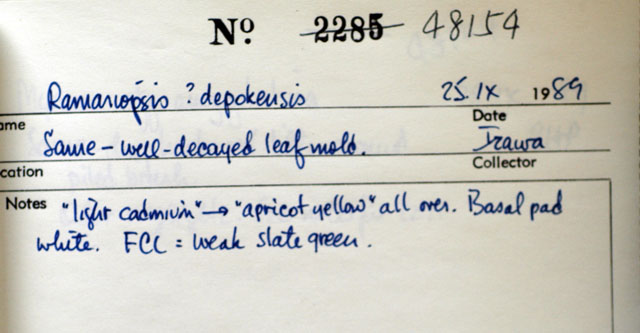 Nº 2285 48154
Ramariopsis ? depokensis 25.IX 1989
ame Date
Same – well-decayed leaf mold. Izawa
cation Collector
Notes "light cadmium" → "apricot yellow" all over. Basal pad
white. FCL = weak slate green.